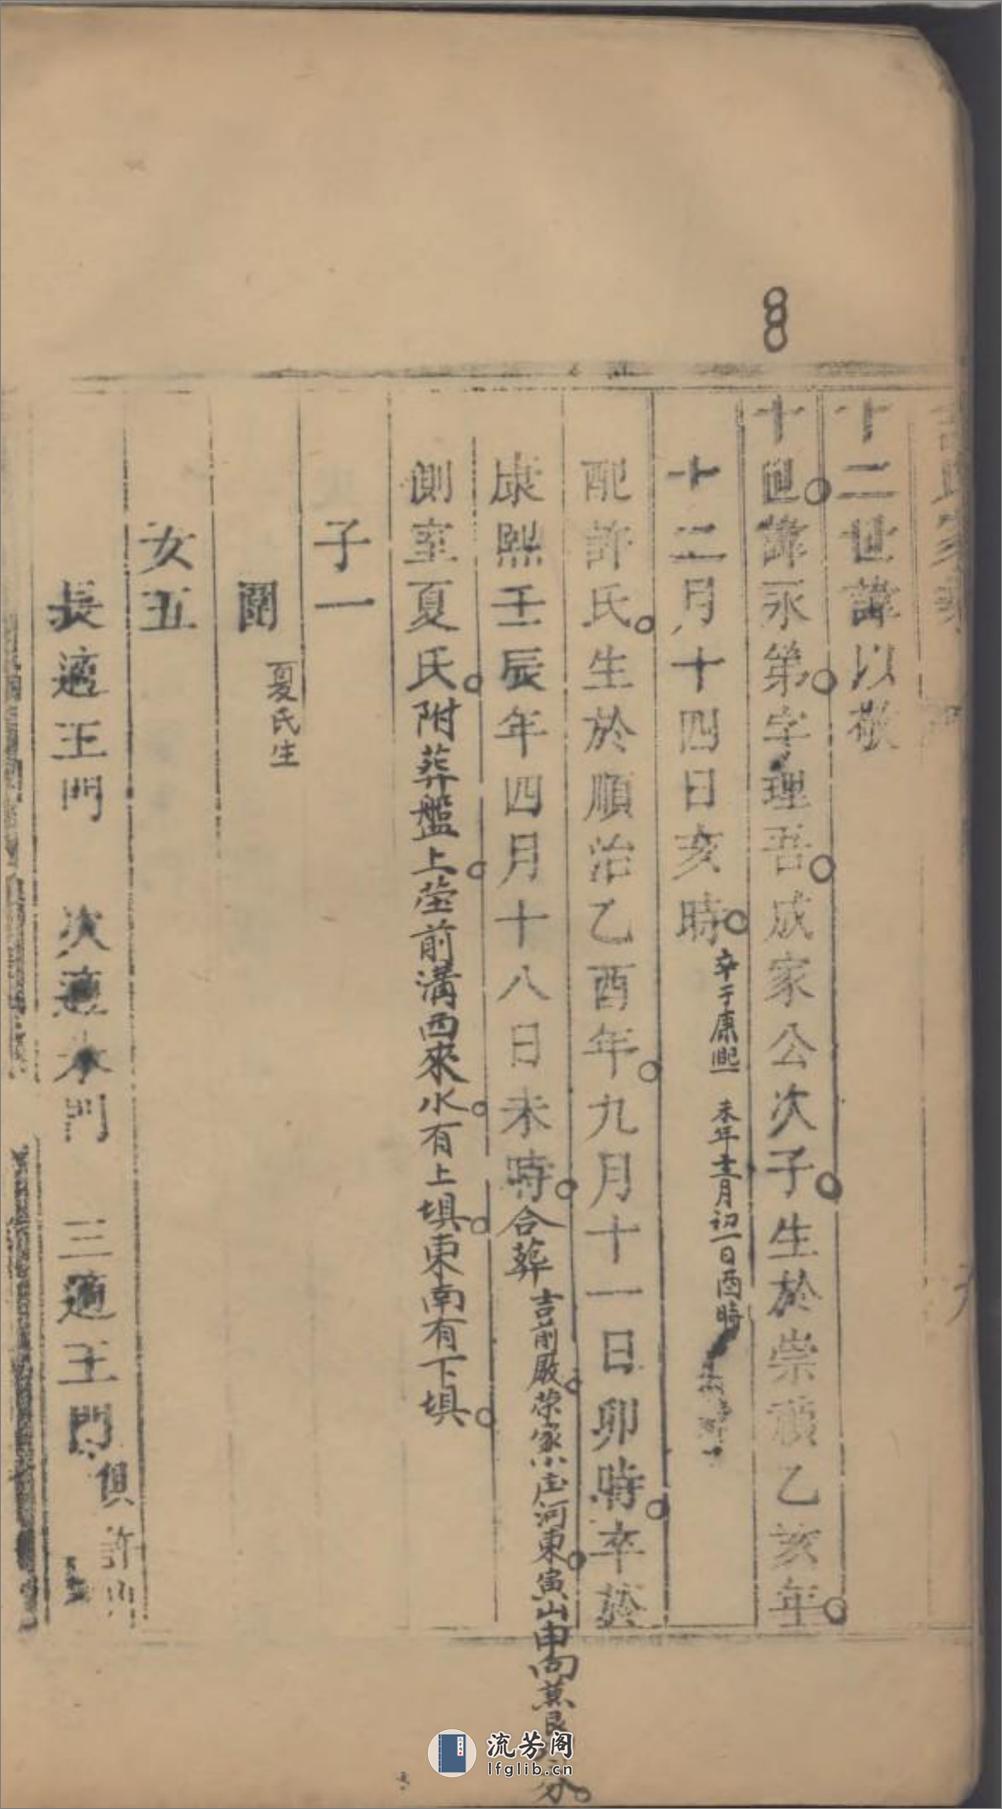 十二世諱以敬
十世諱永第字理吾成家公次子生於崇禎乙亥年
十二月十四日亥時 卒于康熙 未年十二月初一日酉時
配許氏生於順治乙酉年九月十一日卯時卒於
康熙壬辰年四月十八日未時合葬 吉前厰荣家小庄河東寅山申向兼艮 分
側室夏氏附葬盤上塋前溝西來水有上埧東南有下埧
子一
闓 夏氏生
女五
長適王門 次適 門 三適王門 俱許
8
流芳阁
lfglib.cn